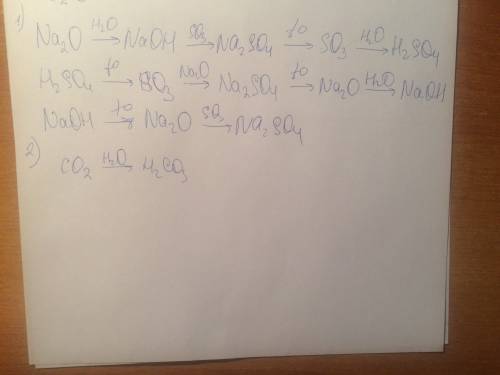 1) Na₂O —H₂O→ NaOH —SO₃→ Na₂SO₄ —t°→ SO₃ —H₂O→ H₂SO₄
H₂SO₄ —t°→ SO₃ —Na₂O→ Na₂SO₄ —t°→ Na₂O —H₂O→ NaOH
NaOH —t°→ Na₂O —SO₃→ Na₂SO₄
2) CO₂ —H₂O→ H₂CO₃